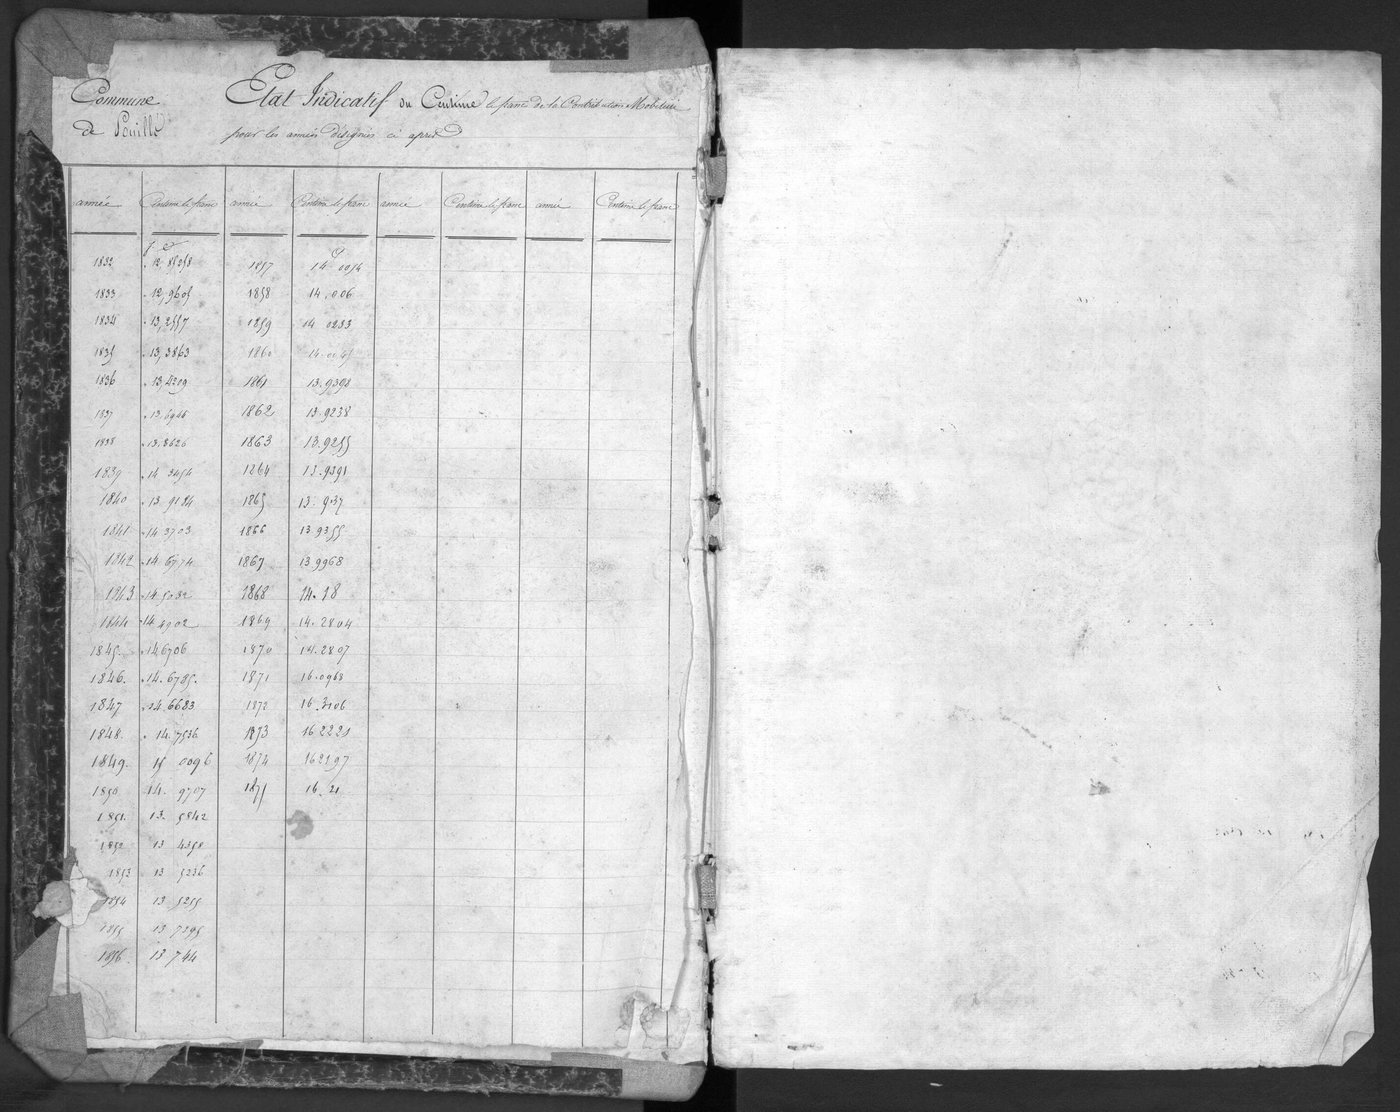 Commune
de Pouillé
Etat Indicatif du Centime le franc de la Contribution Mobilière
pour les années désignées ci après
année Centime le franc année Centime le franc année Centime le franc année Centime le franc
f c c
1832 . 12,8558 1857 14 0054
1833 . 12,9605 1858 14.006
1834 . 13,2557 1859 14 0233
1835 . 13,3863 1860 14.0045
1836 . 13,4209 1861 13.9308
1837 . 13.6946 1862 13.9238
1838 . 13.8626 1863 13.9255
1839 . 14 3454 1864 13.9391
1840 . 13.9184 1865 13.937
1841 . 14 3703 1866 13.9355
1842 . 14.6774 1867 13.9968
1843 . 14.5032 1868 14.18
1844 . 14 4902 1869 14.2804
1845. . 14 6706 1870 14.2807
1846. . 14.6785. 1871 16.0968
1847 . 14.6683 1872 16.3106
1848. . 14.7536 1873 16 2221
1849. 15 0096 1874 16 2197
1850 14. 9707 1875 16.21
1851. 13. 5842
1852 13 4358
1853 13 5236
1854 13 5255
1855 13 7295
1856. 13 744